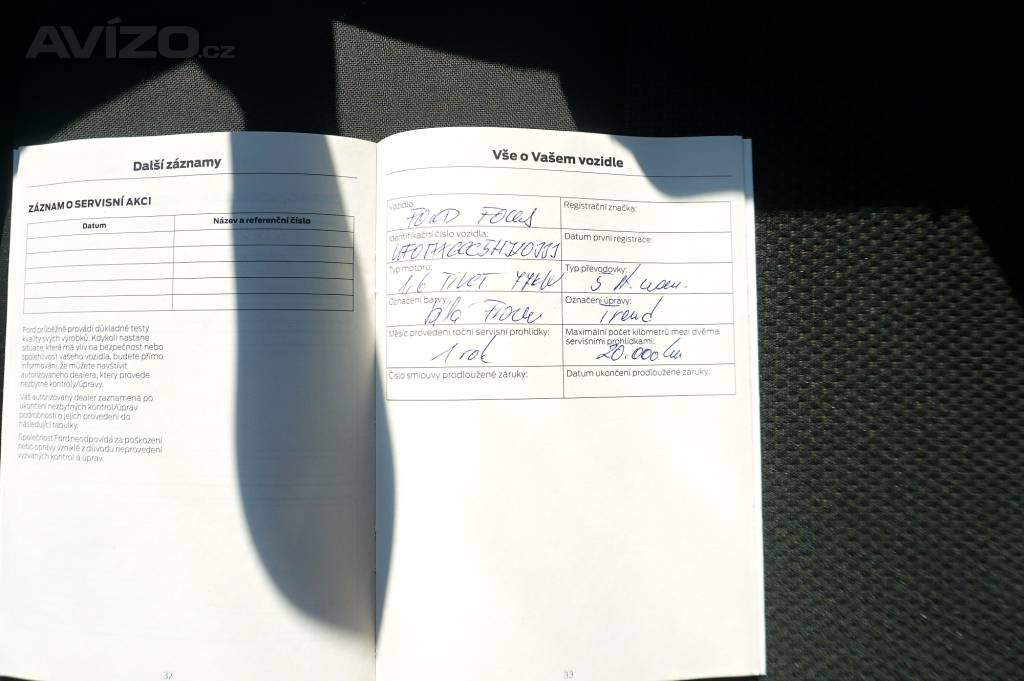 AVÍZO.cz
Další záznamy
ZÁZNAM O SERVISNÍ AKCI
Datum Název a referenční číslo
Ford průběžně provádí důkladné testy
kvality svých výrobků. Kdykoli nastane
situace, která má vliv na bezpečnost nebo
spolehlivost vašeho vozidla, budete přímo
informováni, že můžete navštívit
autorizovaného dealera, který provede
nezbytné kontroly/úpravy.
Váš autorizovaný dealer zaznamená po
ukončení nezbytných kontrol/úprav
podrobnosti o jejich provedení do
následující tabulky.
Společnost Ford neodpovídá za poškození
nebo opravy vzniklé z důvodu neprovedení
vyzvaných kontrol a úprav.
32
Vše o Vašem vozidle
Vozidlo: Registrační značka:
FORD FOCUS
Identifikační číslo vozidla: Datum první registrace:
Typ motoru: Typ převodovky:
1,6 77kW 5 st. man.
Označení barvy: Označení úpravy:
Bílá Trend
Měsíc provedení roční servisní prohlídky: Maximální počet kilometrů mezi dvěma
servisními prohlídkami:
1 rok 20.000 km
Číslo smlouvy prodloužené záruky: Datum ukončení prodloužené záruky:
33